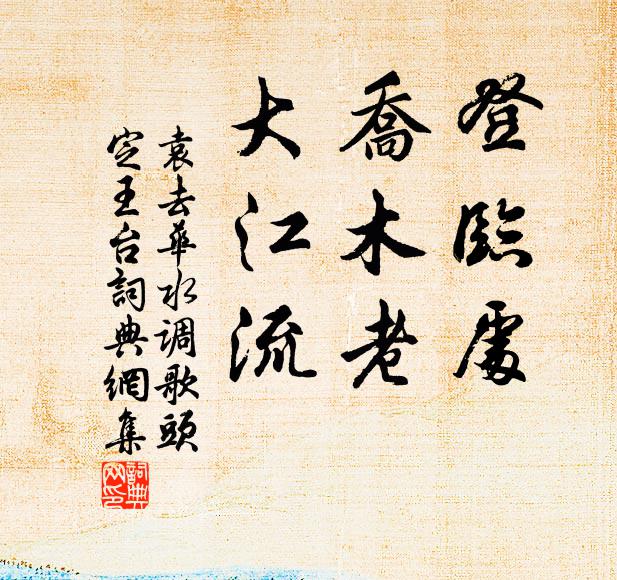 登臨處
喬木老
大江流
袁去華水调歌頭
定王台詞典網集
詞典网印